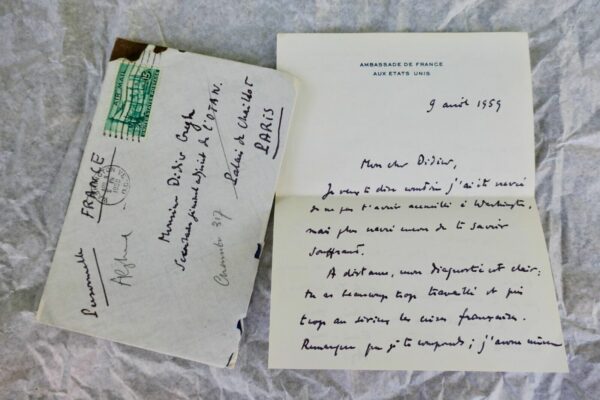 AIR MAIL
Personnelle
FRANCE
Alphand
Monsieur Didier Gregh
Secrétaire général adjoint de l'OTAN.
Palais de Chaillot
PARIS
AMBASSADE DE FRANCE
AUX ETATS UNIS
9 1959
Mon cher Didier,
Je veux te dire combien j'ai été navré
de ne pas t'avoir accueilli à Washington,
mais plus navré encore de te savoir
souffrant.
A distance, mon diagnostic est clair:
tu as beaucoup trop travaillé et pris
trop au sérieux les crises françaises.
Remarque que je te comprends; j'avoue même